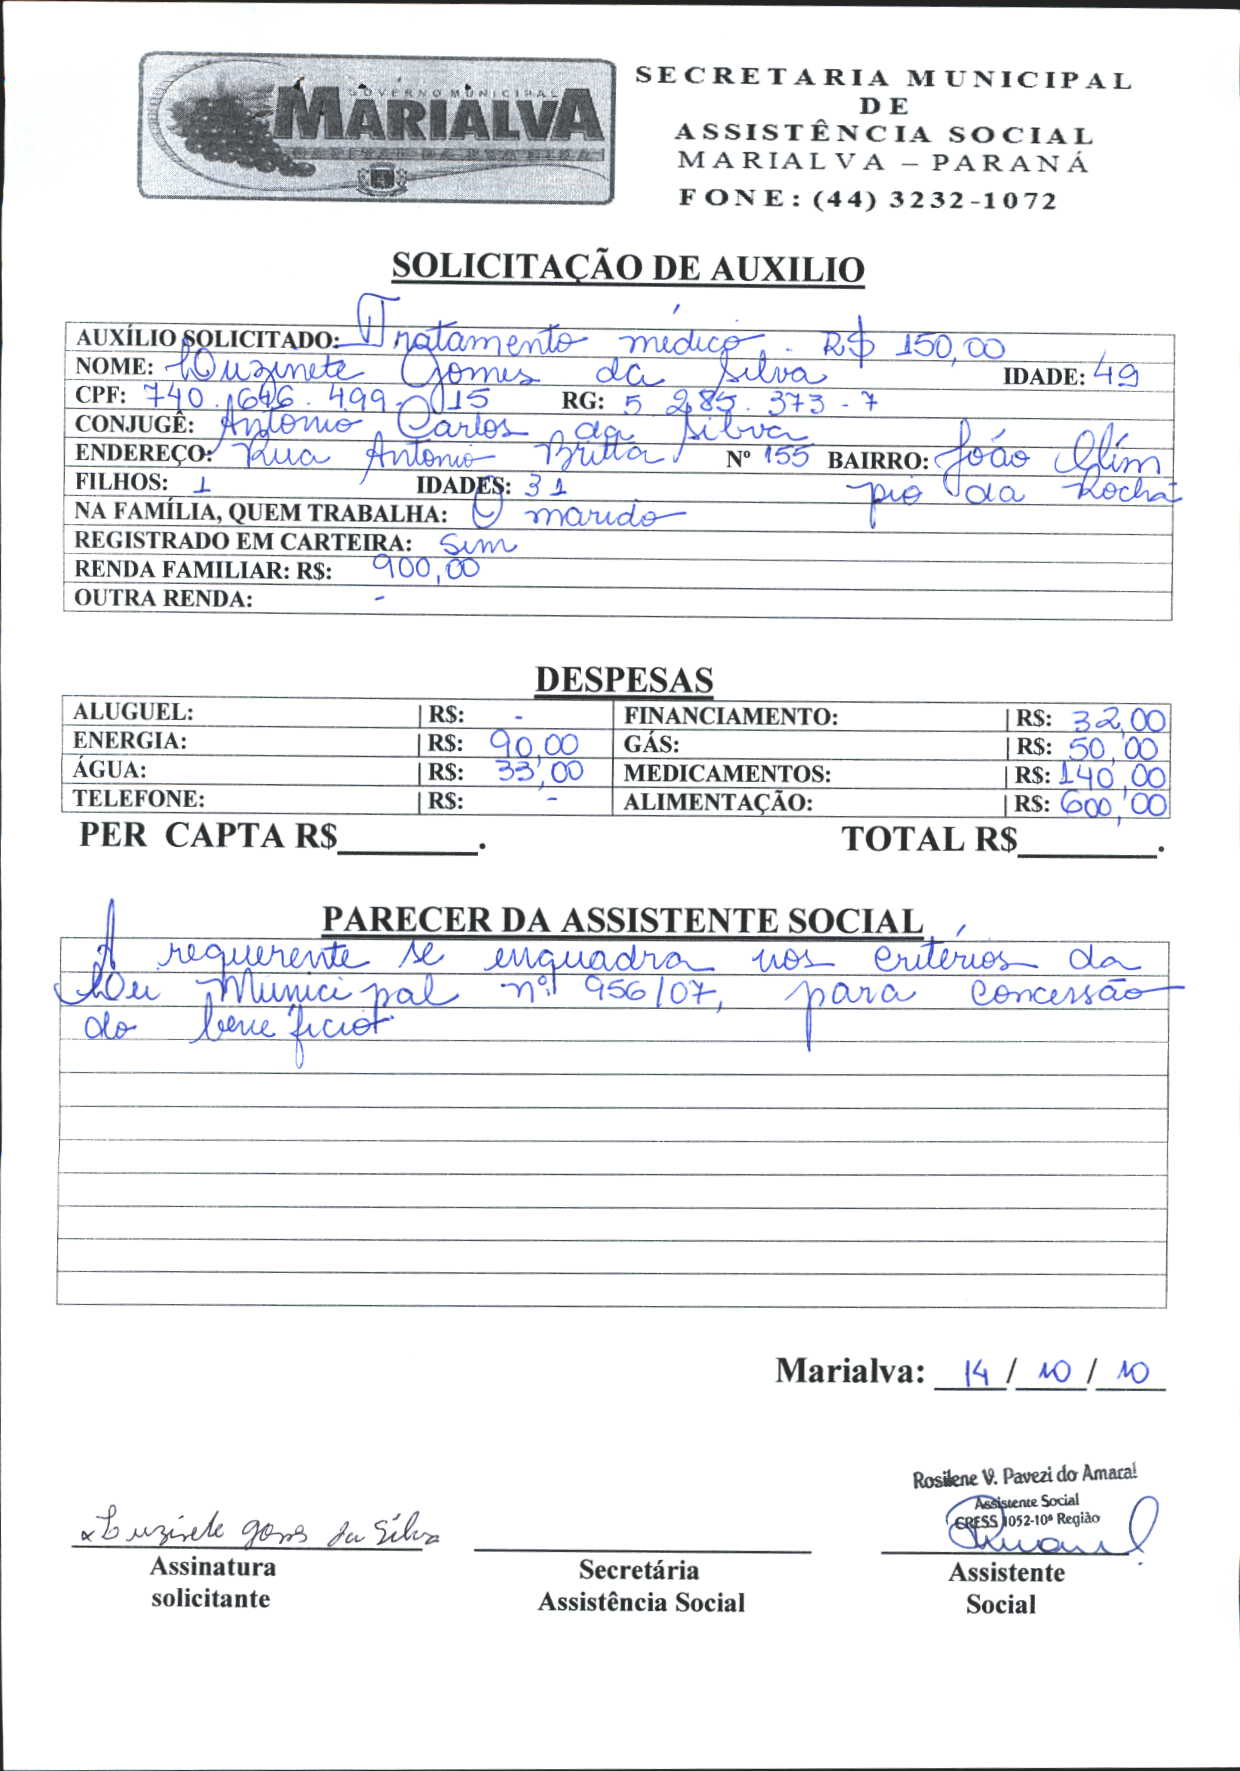 GOVERNO MUNICIPAL
MARIALVA
SECRETARIA MUNICIPAL
DE
ASSISTÊNCIA SOCIAL
MARIALVA – PARANÁ
FONE: (44) 3232-1072
SOLICITAÇÃO DE AUXILIO
AUXÍLIO SOLICITADO: Tratamento médico. R$ 150,00
NOME: Luzinete Gomes da Silva IDADE: 49
CPF: 740.646.499-15 RG: 5 285.373-7
CONJUGÊ: Antonio Carlos da Silva
ENDEREÇO: Rua Antonio Britta Nº 155 BAIRRO: João Olím
pio da Rocha
FILHOS: 1 IDADES: 31
NA FAMÍLIA, QUEM TRABALHA: O marido
REGISTRADO EM CARTEIRA: Sim
RENDA FAMILIAR: R$: 900,00
OUTRA RENDA: -
DESPESAS
ALUGUEL: | R$: - FINANCIAMENTO: | R$: 32,00
ENERGIA: | R$: 90,00 GÁS: | R$: 50,00
ÁGUA: | R$: 33,00 MEDICAMENTOS: | R$: 140,00
TELEFONE: | R$: - ALIMENTAÇÃO: | R$: 600,00
PER CAPTA R$________. TOTAL R$________.
PARECER DA ASSISTENTE SOCIAL
A requerente se enquadra nos critérios da
Lei Municipal nº 956/07, para concessão
do benefício
Marialva: 14 / 10 / 10
Rosilene V. Pavezi do Amaral
Assistente Social
CRESS 1052-10ª Região
Luzinete gomes da Silva
Assinatura Secretária Assistente
solicitante Assistência Social Social